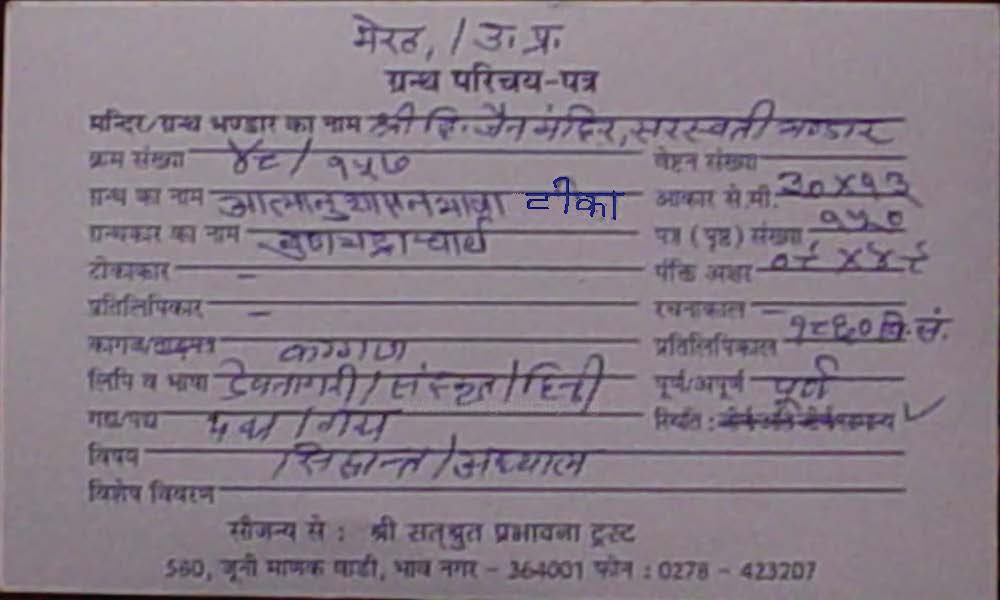 मेरठ, / उ. प्र.
ग्रन्थ परिचय-पत्र
मन्दिर/ग्रन्थ भण्डार का नाम श्री दि. जैन मंदिर, सरस्वती भण्डार
क्रम संख्या ४८ / १५७ वेष्टन संख्या
ग्रन्थ का नाम आत्मानुशासन भाषा टीका आकार से.मी. ३० X १३
ग्रन्थकार का नाम गुणभद्राचार्य पत्र (पृष्ठ) संख्या १५०
टीकाकार – पंक्ति अक्षर ०८ X ४८
प्रतिलिपिकार – रचनाकाल –
कागज/ताड़पत्र कागज प्रतिलिपिकाल १८६० वि. सं.
लिपि व भाषा देवनागरी / संस्कृत / हिन्दी पूर्ण/अपूर्ण पूर्ण
गद्य/पद्य पद्य / गद्य स्थिति :
विषय सिद्धान्त / अध्यात्म
विशेष विवरन
सौजन्य से : श्री सत्श्रुत प्रभावना ट्रस्ट
580, जूनी माणक वाडी, भाव नगर – 364001 फोन : 0278 – 423207